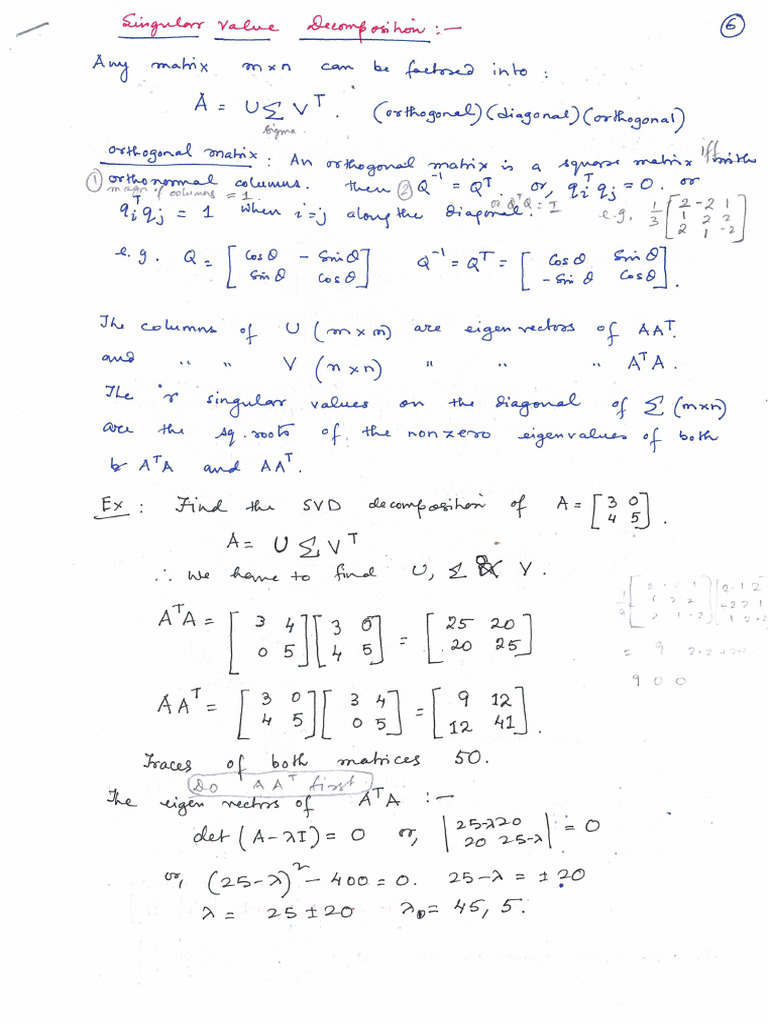 Singular Value Decomposition :—
6
Any matrix m×n can be factored into :
A = U Σ Vᵀ . (orthogonal)(diagonal)(orthogonal)
sigma
orthogonal matrix : An orthogonal matrix is a square matrix iff with
① orthonormal columns. then ② Q⁻¹ = Qᵀ. or, qᵢᵀqⱼ = 0. or
magn of columns = 1
or QᵀQ = I
qᵢᵀqⱼ = 1 when i=j along the diagonal. e.g. 1/3 [2 -2 1; 1 2 2; 2 1 -2]
e.g. Q = [Cosθ -Sinθ; Sinθ Cosθ] Q⁻¹ = Qᵀ = [Cosθ Sinθ; -Sinθ Cosθ].
The columns of U (m×m) are eigen vectors of AAᵀ.
and " " V (n×n) " " " AᵀA.
The 'r' singular values on the diagonal of Σ (m×n)
are the sq. roots of the nonzero eigenvalues of both
AᵀA and AAᵀ.
Ex : Find the SVD decomposition of A = [3 0; 4 5].
A = U Σ Vᵀ
∴ We have to find U, Σ & V.
AᵀA = [3 4; 0 5][3 0; 4 5] = [25 20; 20 25]
AAᵀ = [3 0; 4 5][3 4; 0 5] = [9 12; 12 41].
= 9
9 0 0
Traces of both matrices 50.
Do AAᵀ first
The eigen vectors of AᵀA :—
det (A-λI) = 0 or, |25-λ 20; 20 25-λ| = 0
or, (25-λ)² - 400 = 0. 25-λ = ±20
λ = 25 ± 20 λ = 45, 5.